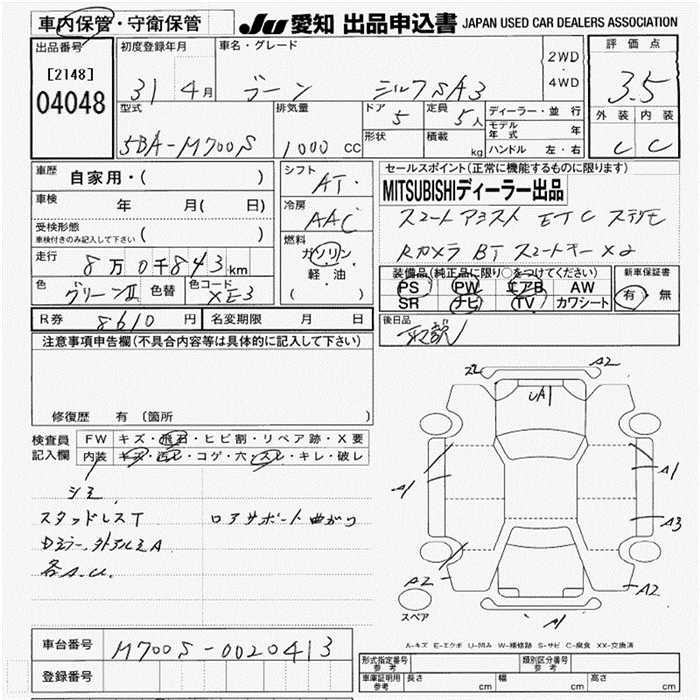 車内保管・守衛保管
JU 愛知 出品申込書 JAPAN USED CAR DEALERS ASSOCIATION
出品番号
[2148]
04048
初度登録年月
31 4月
車名・グレード
ブーン シルクSA3
2WD
4WD
評価点
3.5
外装 内装
C C
型式
5BA-M700S
排気量
1000 CC
ドア
5
定員
5人
形状
積載
kg
ディーラー・並行
モデル年式 年
ハンドル 左・右
車歴
自家用・( )
車検
年 月( 日)
受検形態
車検付きのみ記入して下さい ( )
走行
8万0千843km
色
グリーンII
色替
色コード
XE3
シフト
AT
冷房
AAC
燃料
ガソリン
軽油
( )
セールスポイント(正常に機能するものに限ります)
MITSUBISHIディーラー出品
スマートアシスト ETC ステリモ
Rカメラ BT スマートキー×2
装備品(純正品に限り○をつけてください)
PS PW エアB AW
SR ナビ TV カワシート
新車保証書
有・無
R券 8610円
名変期限 月 日
後日品
取説
注意事項申告欄(不具合内容等は具体的に記入して下さい)
修復歴 有 〔箇所 〕
検査員
記入欄
FW キズ・飛石・ヒビ割・リペア跡・X要
内装 キズ・汚レ・コゲ・穴・スレ・キレ・破レ
シミ
スタッドレスT ロアサポート曲がり
Dミラー、外アルミA
各A.U.
A2
UA1
A1
A1
A3
A2
A2
A1
スペア
A-キズ E-エクボ U-凹み W-補修跡 S-サビ C-腐食 XX-交換済
車台番号
M700S-0020413
登録番号
形式指定番号
参考
類別区分番号
参考
車庫証明用
参考
長さ cm 幅 cm 高さ cm